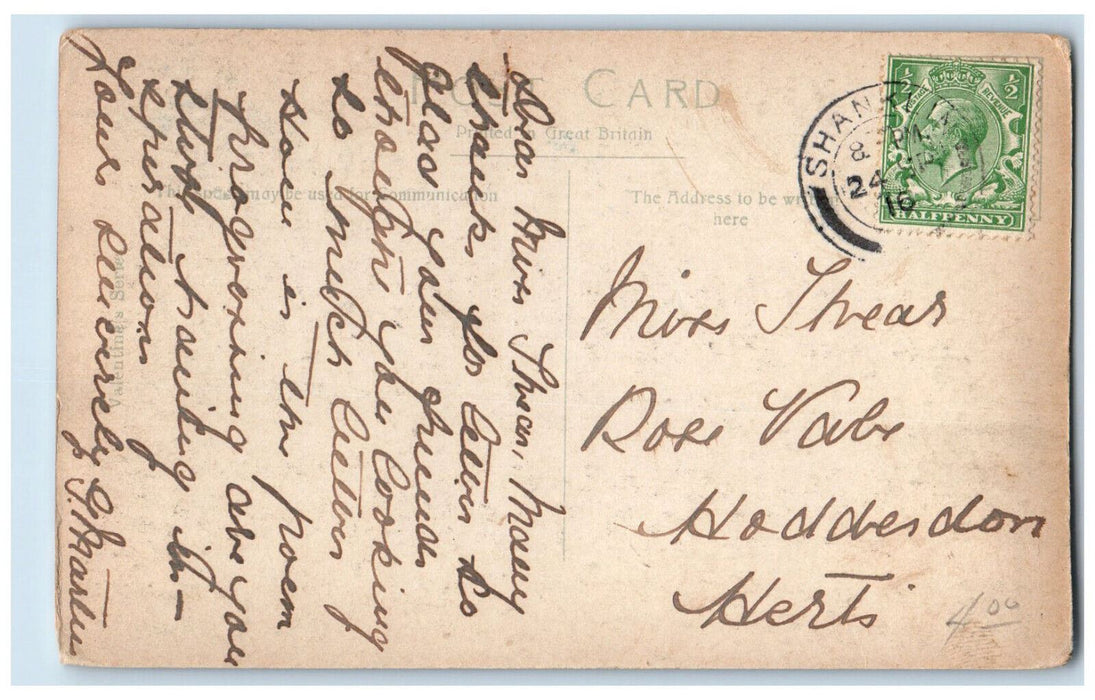 POST CARD
Printed in Great Britain
This Space may be used for Communication
The Address to be written
here
Valentine's Series
½ ½
POSTAGE REVENUE
HALFPENNY
SHANK
8 PM
24
16
Miss Shear
Rose Vale
Hoddesdon
Herts
4 00
Dear Miss Shear, Many
thanks for letter so
glad your friends
thought you looking
so much better
How is the poem
progressing are you
still having in-
spirations
Yours sincerely G. Martin